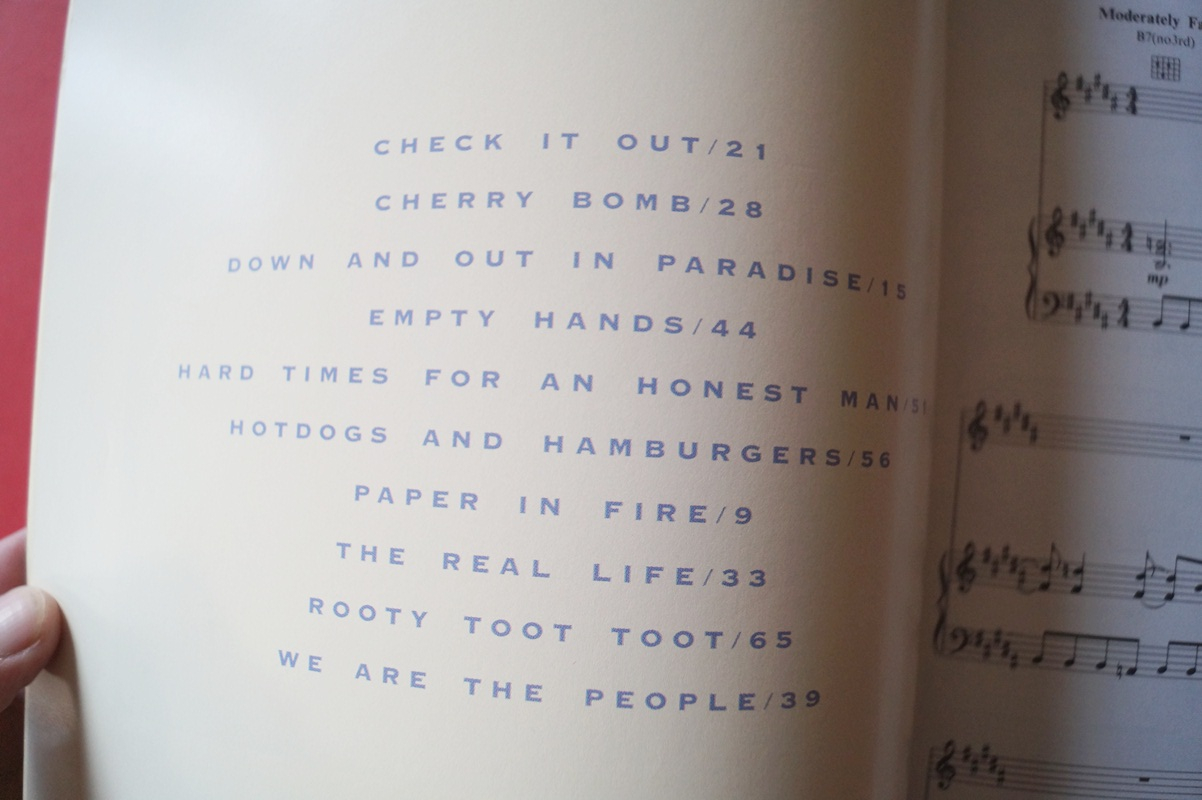 CHECK IT OUT/21
CHERRY BOMB/28
DOWN AND OUT IN PARADISE/15
EMPTY HANDS/44
HARD TIMES FOR AN HONEST MAN/51
HOTDOGS AND HAMBURGERS/56
PAPER IN FIRE/9
THE REAL LIFE/33
ROOTY TOOT TOOT/65
WE ARE THE PEOPLE/39
Moderately
B7(no3rd)
mp